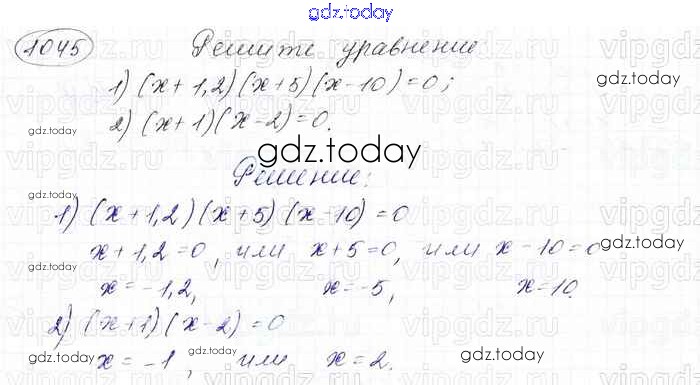 gdz.today
1045 Решите уравнение:
1) (x+1,2)(x+5)(x-10)=0;
2) (x+1)(x-2)=0.
gdz.today
gdz.today
gdz.today
Решение:
gdz.today
1) (x+1,2)(x+5)(x-10)=0
x+1,2=0, или x+5=0, или x-10=0
gdz.today
gdz.today
x=-1,2, x=-5, x=10.
2) (x+1)(x-2)=0
gdz.today
gdz.today
gdz.today
x=-1, или x=2.